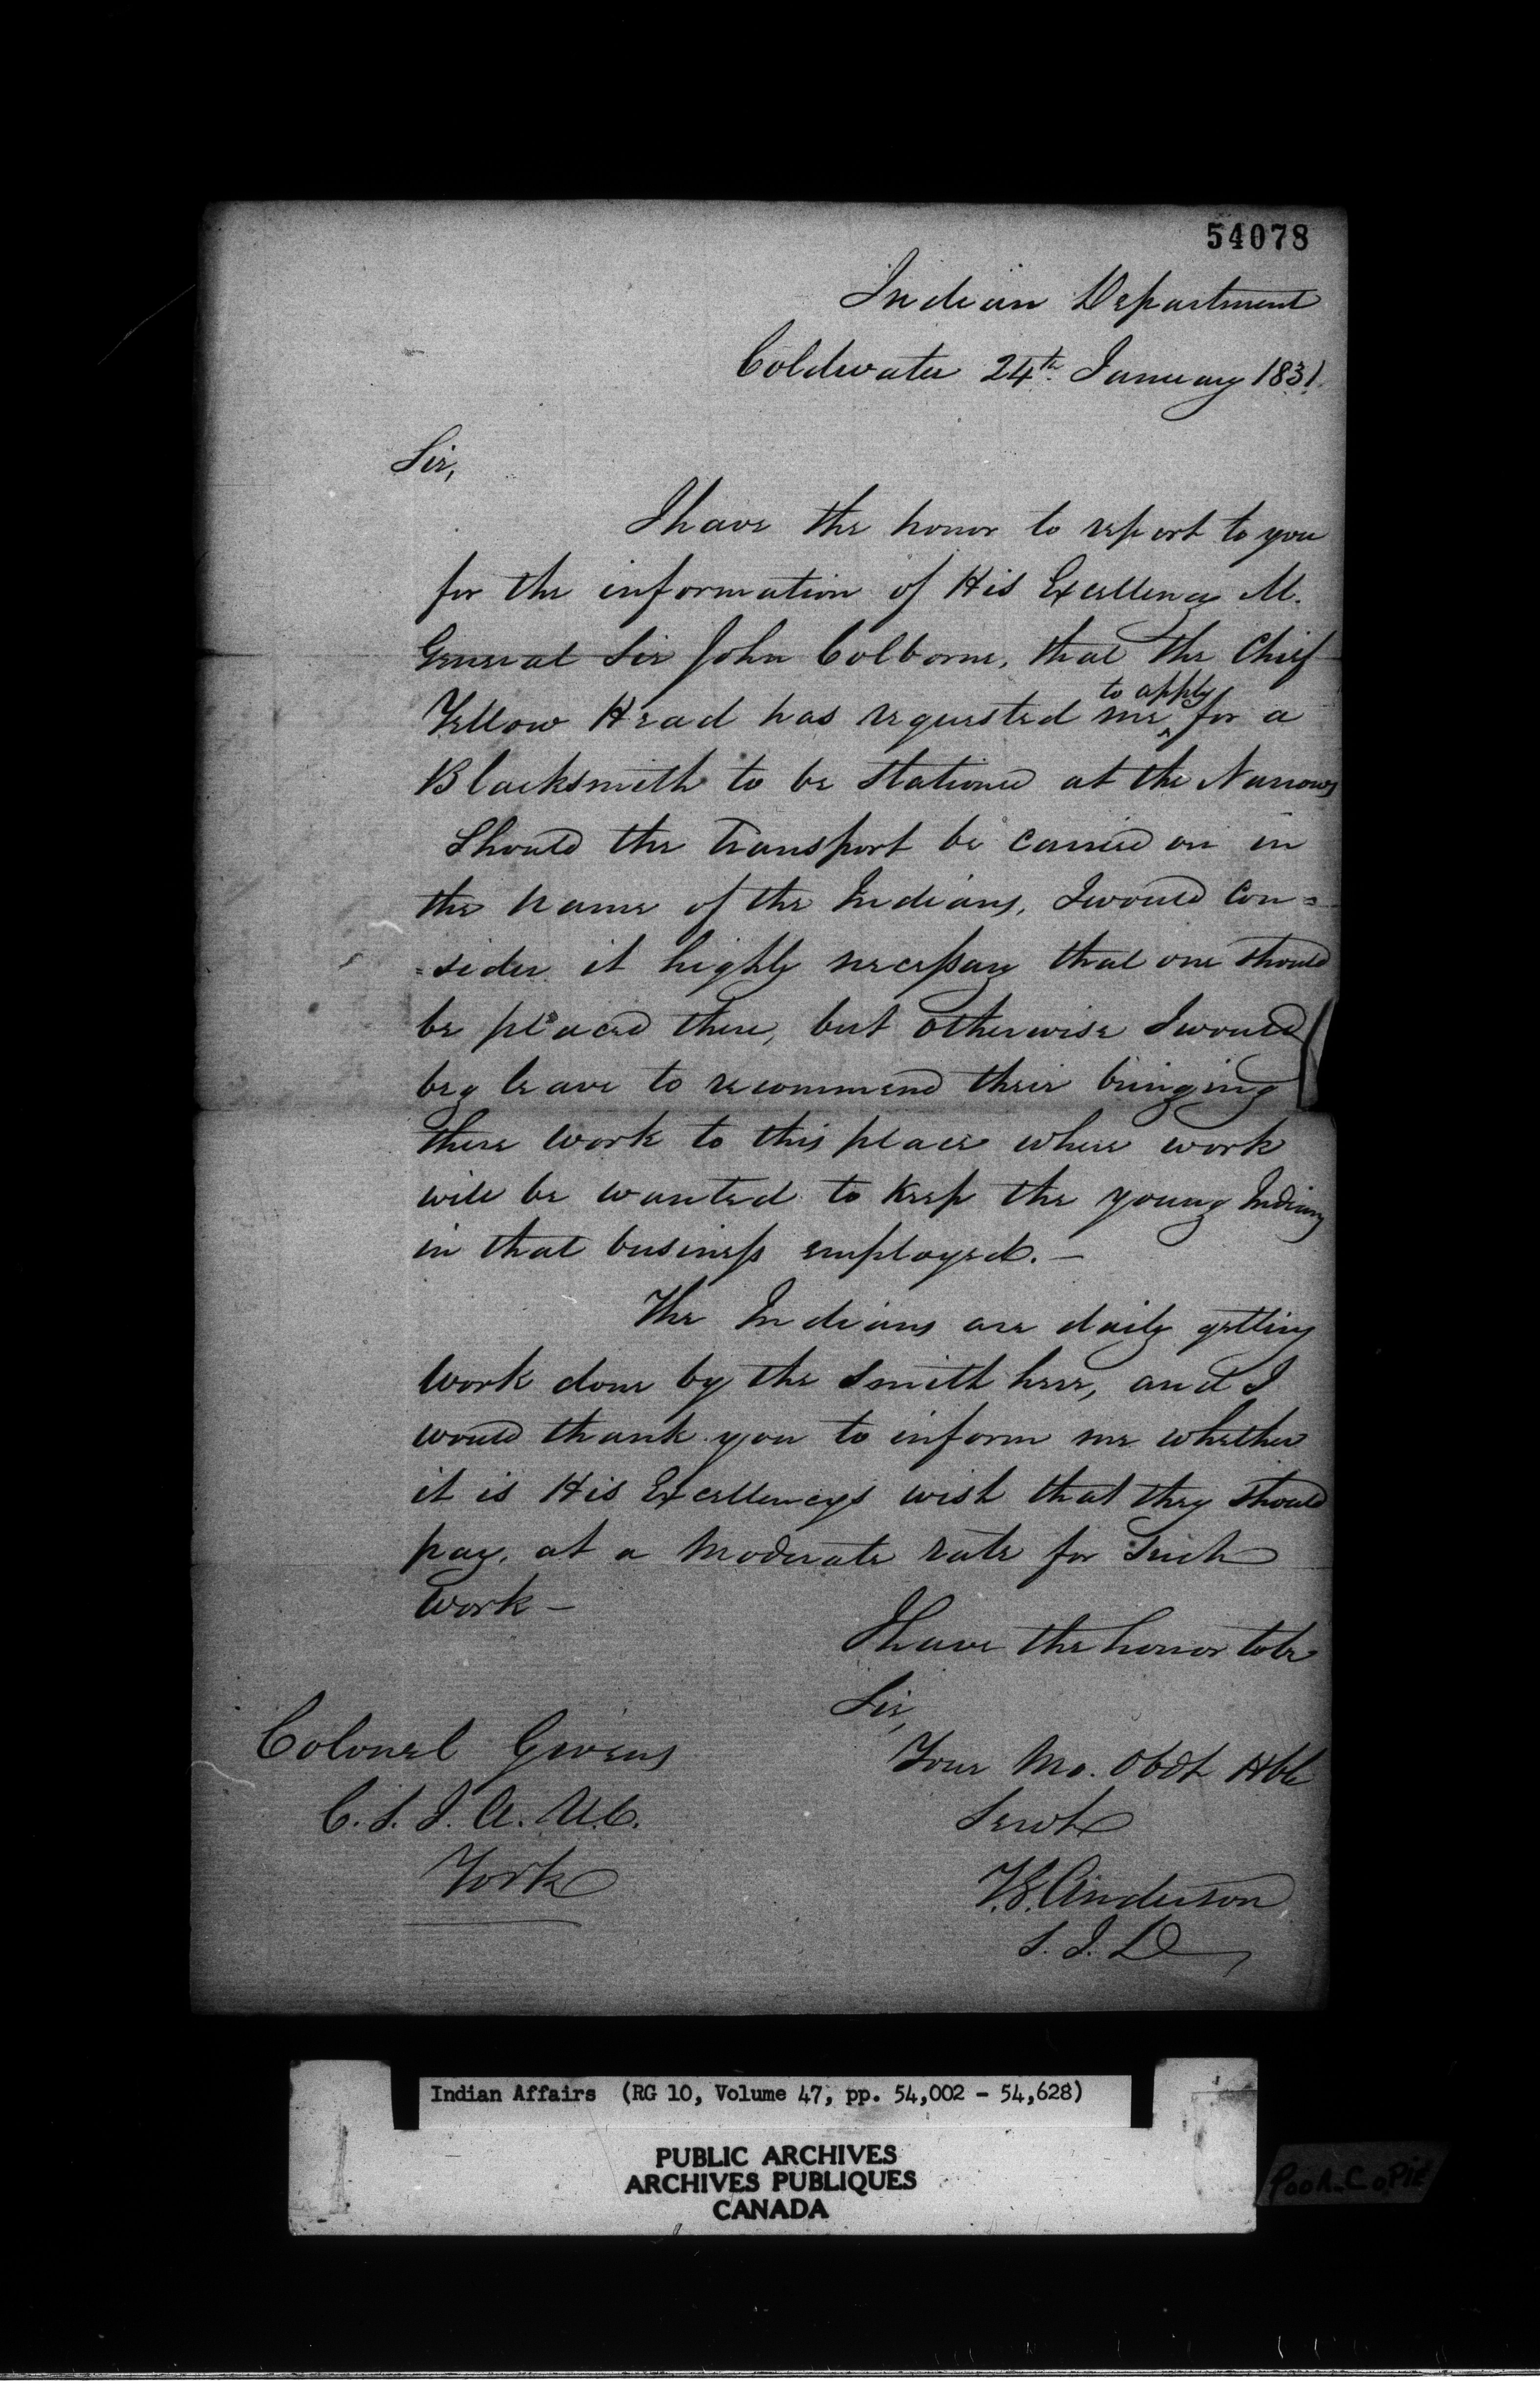 54078
Indian Department
Coldwater 24th January 1831.
Sir,
I have the honor to report to you
for the information of His Excellency M.
General Sir John Colborne, that the Chief
to apply
Yellow Head has requested me ^ for a
Blacksmith to be stationed at the Narrows
Should the Transport be carried on in
the name of the Indians, I would con=
=sider it highly necessary that one should
be placed there, but otherwise I would
beg leave to recommend their bringing
there work to this place where work
will be wanted to keep the young Indians
in that business employed. —
The Indians are daily getting
work done by the Smith here, and I
would thank you to inform me whether
it is His Excellencys wish that they should
pay, at a moderate rate for such
work —
I have the honor to be
Sir,
Your Mo. Obdt Hble
Servt
T.G. Anderson
S. I. D
Colonel Givens
C. S. I. A. U.C.
York
Indian Affairs (RG 10, Volume 47, pp. 54,002 - 54,628)
PUBLIC ARCHIVES
ARCHIVES PUBLIQUES
CANADA
Poor Copie